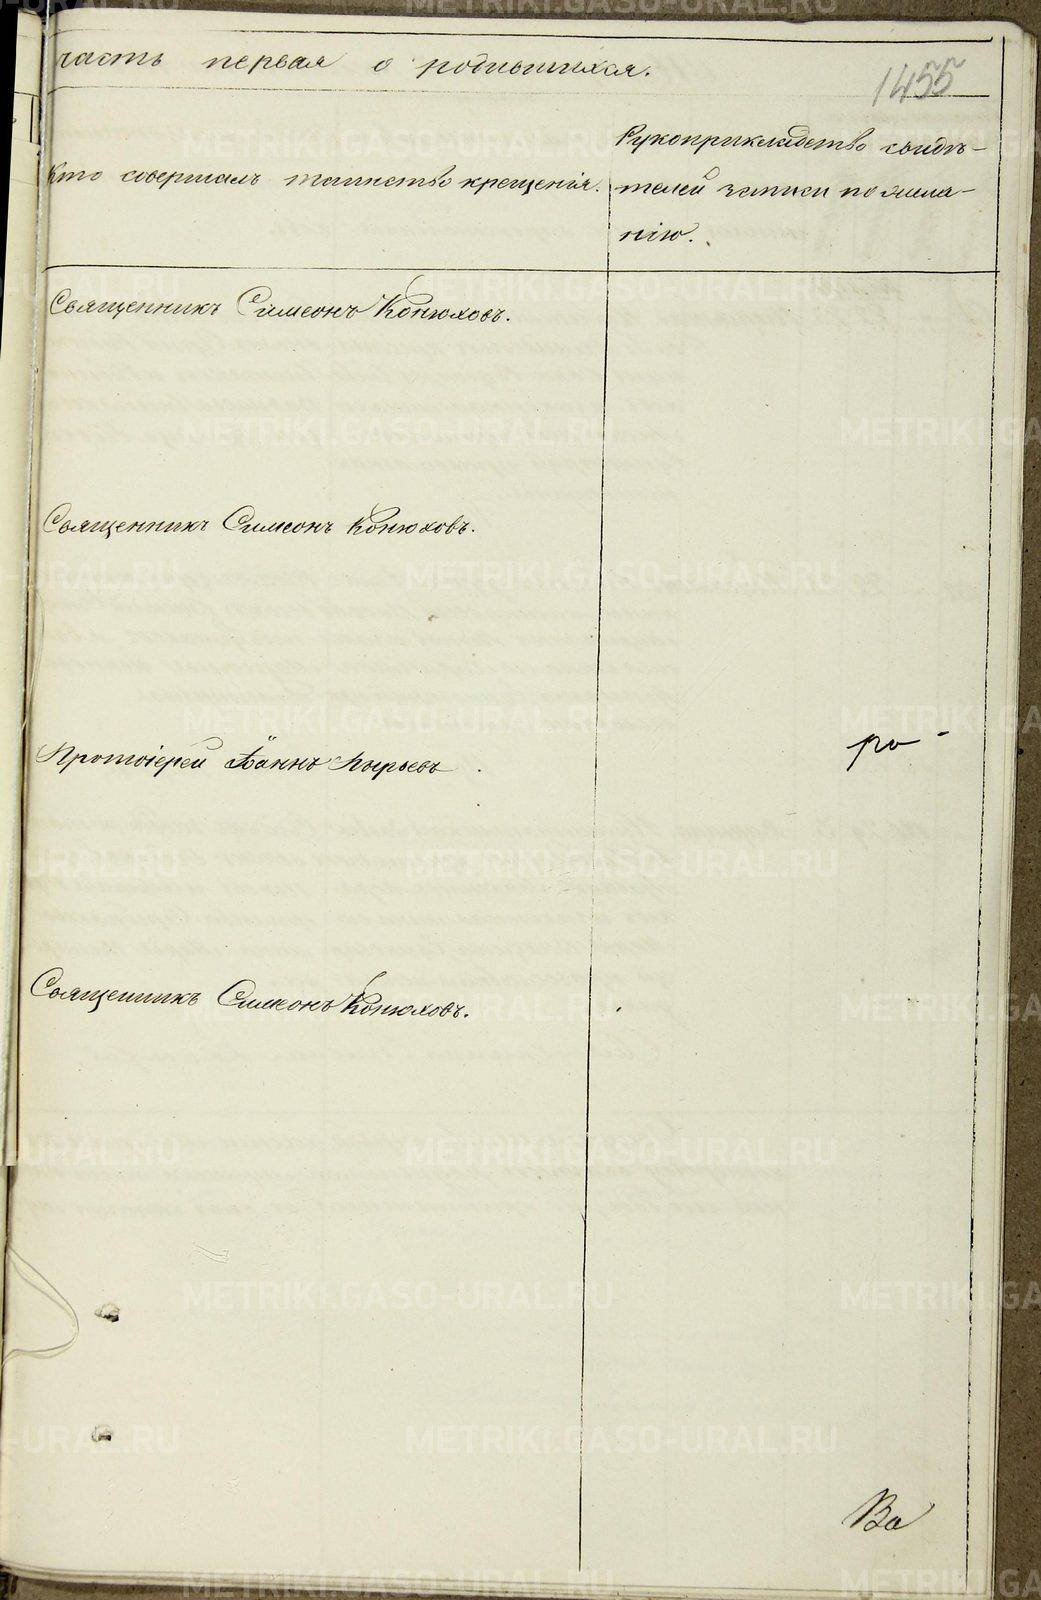 часть первая о родившихся.
1455
Кто совершалъ таинство крещенія.
Рукоприкладство свидѣ-
телей записи по жела-
нію.
Священникъ Симеонъ Конюховъ.
Священникъ Симеонъ Конюховъ.
Протоіерей Іоаннъ Пырьевъ.
ро-
Священникъ Симеонъ Конюховъ.
Ва
METRIKI.GASO-URAL.RU